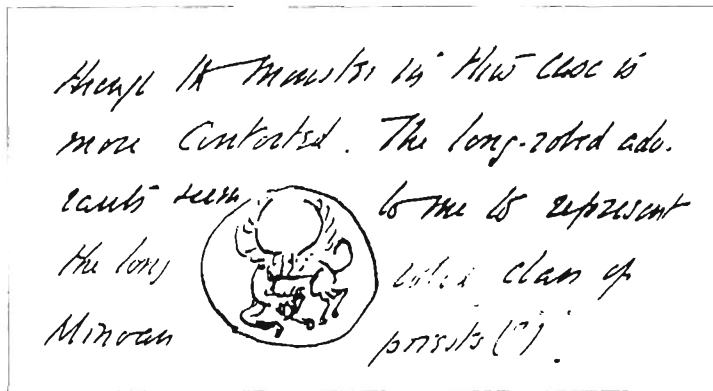 though the Monster in this case is
more Contorted. The long-robed ado-
rants seem to me to represent
the long robed class of
Minoan priests (?).